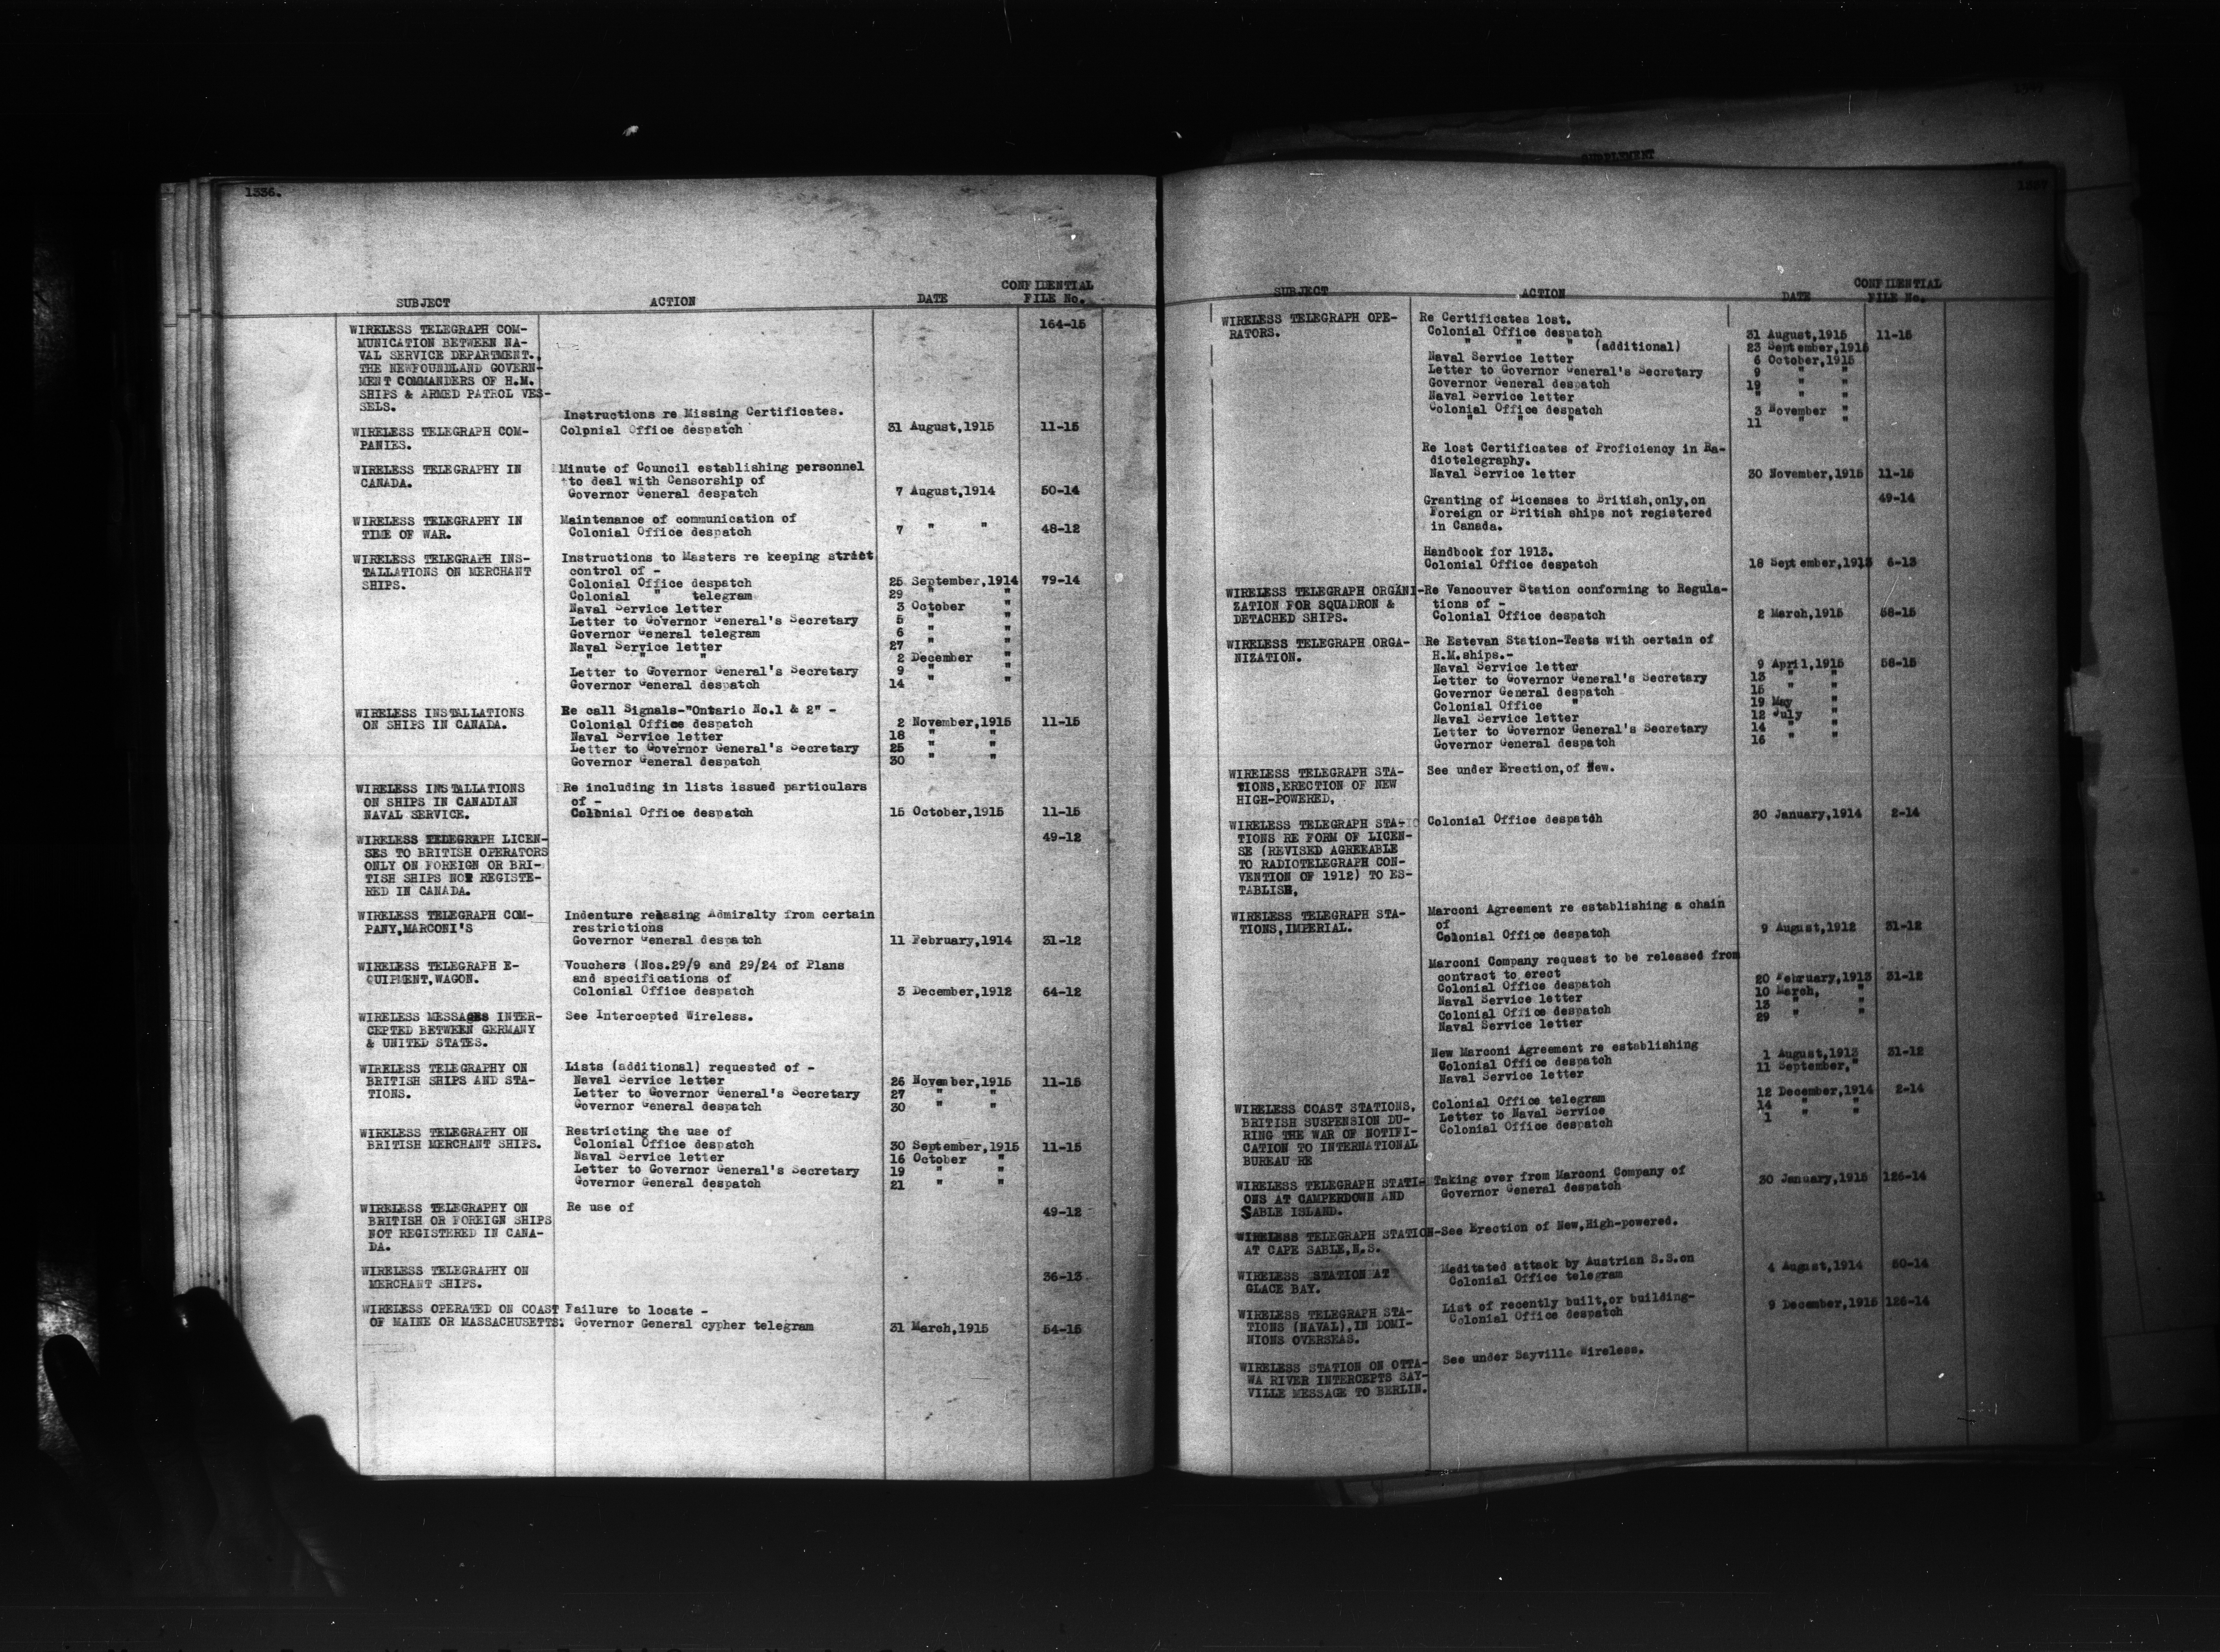 1336.
SUBJECT ACTION DATE CONFIDENTIAL FILE No.
WIRELESS TELEGRAPH COM- 164-15
MUNICATION BETWEEN NA-
VAL SERVICE DEPARTMENT.,
THE NEWFOUNDLAND GOVERN-
MENT COMMANDERS OF H.M.
SHIPS & ARMED PATROL VES-
SELS.
Instructions re Missing Certificates.
WIRELESS TELEGRAPH COM- Colonial Office despatch 31 August,1915 11-15
PANIES.
WIRELESS TELEGRAPHY IN Minute of Council establishing personnel
CANADA. to deal with Censorship of
Governor General despatch 7 August,1914 50-14
WIRELESS TELEGRAPHY IN Maintenance of communication of
TIME OF WAR. Colonial Office despatch 7 " " 48-12
WIRELESS TELEGRAPH INS- Instructions to Masters re keeping strict
TALLATIONS ON MERCHANT control of -
SHIPS. Colonial Office despatch 25 September,1914 79-14
Colonial " telegram 29 " "
Naval Service letter 3 October "
Letter to Governor General's Secretary 5 " "
Governor General telegram 6 " "
Naval Service letter 27 " "
" " " 2 December "
Letter to Governor General's Secretary 9 " "
Governor General despatch 14 " "
WIRELESS INSTALLATIONS Re call Signals-"Ontario No.1 & 2" -
ON SHIPS IN CANADA. Colonial Office despatch 2 November,1915 11-15
Naval Service letter 18 " "
Letter to Governor General's Secretary 25 " "
Governor General despatch 30 " "
WIRELESS INSTALLATIONS Re including in lists issued particulars
ON SHIPS IN CANADIAN of -
NAVAL SERVICE. Colonial Office despatch 15 October,1915 11-15
WIRELESS TELEGRAPH LICEN- 49-12
SES TO BRITISH OPERATORS
ONLY ON FOREIGN OR BRI-
TISH SHIPS NOT REGISTE-
RED IN CANADA.
WIRELESS TELEGRAPH COM- Indenture releasing Admiralty from certain
PANY,MARCONI'S restrictions
Governor General despatch 11 February,1914 31-12
WIRELESS TELEGRAPH E- Vouchers (Nos.29/9 and 29/24 of Plans
QUIPMENT,WAGON. and specifications of
Colonial Office despatch 3 December,1912 64-12
WIRELESS MESSAGES INTER- See Intercepted Wireless.
CEPTED BETWEEN GERMANY
& UNITED STATES.
WIRELESS TELEGRAPHY ON Lists (additional) requested of -
BRITISH SHIPS AND STA- Naval Service letter 26 November,1915 11-15
TIONS. Letter to Governor General's Secretary 27 " "
Governor General despatch 30 " "
WIRELESS TELEGRAPHY ON Restricting the use of
BRITISH MERCHANT SHIPS. Colonial Office despatch 30 September,1915 11-15
Naval Service letter 16 October "
Letter to Governor General's Secretary 19 " "
Governor General despatch 21 " "
WIRELESS TELEGRAPHY ON Re use of 49-12
BRITISH OR FOREIGN SHIPS
NOT REGISTERED IN CANA-
DA.
WIRELESS TELEGRAPHY ON 36-13
MERCHANT SHIPS.
WIRELESS OPERATED ON COAST Failure to locate -
OF MAINE OR MASSACHUSETTS. Governor General cypher telegram 31 March,1915 54-15
SUPPLEMENT
1337
SUBJECT ACTION DATE CONFIDENTIAL FILE No.
WIRELESS TELEGRAPH OPE- Re Certificates lost.
RATORS. Colonial Office despatch 31 August,1915 11-15
" " " (additional) 23 September,1915
Naval Service letter 6 October,1915
Letter to Governor General's Secretary 9 " "
Governor General despatch 19 " "
Naval Service letter " " "
Colonial Office despatch 3 November "
" " " 11 " "
Re lost Certificates of Proficiency in Ra-
diotelegraphy.
Naval Service letter 30 November,1915 11-15
Granting of Licenses to British,only,on 49-14
Foreign or British ships not registered
in Canada.
Handbook for 1913.
Colonial Office despatch 18 September,1913 6-13
WIRELESS TELEGRAPH ORGANI- Re Vancouver Station conforming to Regula-
ZATION FOR SQUADRON & tions of -
DETACHED SHIPS. Colonial Office despatch 2 March,1915 58-15
WIRELESS TELEGRAPH ORGA- Re Estevan Station-Tests with certain of
NIZATION. H.M.ships.-
Naval Service letter 9 April,1915 58-15
Letter to Governor General's Secretary 13 " "
Governor General despatch 15 " "
Colonial Office " 19 May "
Naval Service letter 12 July "
Letter to Governor General's Secretary 14 " "
Governor General despatch 16 " "
WIRELESS TELEGRAPH STA- See under Erection,of New.
TIONS,ERECTION OF NEW
HIGH-POWERED,
WIRELESS TELEGRAPH STA- Colonial Office despatch 30 January,1914 2-14
TIONS RE FORM OF LICEN-
SE (REVISED AGREEABLE
TO RADIOTELEGRAPH CON-
VENTION OF 1912) TO ES-
TABLISH,
WIRELESS TELEGRAPH STA- Marconi Agreement re establishing a chain
TIONS,IMPERIAL. of
Colonial Office despatch 9 August,1912 31-12
Marconi Company request to be released from
contract to erect
Colonial Office despatch 20 February,1913 31-12
Naval Service letter 10 March, "
Colonial Office despatch 13 " "
Naval Service letter 29 " "
New Marconi Agreement re establishing
Colonial Office despatch 1 August,1913 31-12
Naval Service letter 11 September,"
WIRELESS COAST STATIONS, Colonial Office telegram 12 December,1914 2-14
BRITISH SUSPENSION DU- Letter to Naval Service 14 " "
RING THE WAR OF NOTIFI- Colonial Office despatch 1 " "
CATION TO INTERNATIONAL
BUREAU RE
WIRELESS TELEGRAPH STATI- Taking over from Marconi Company of
ONS AT CAMPERDOWN AND Governor General despatch 30 January,1915 126-14
SABLE ISLAND.
WIRELESS TELEGRAPH STATION-See Erection of New,High-powered.
AT CAPE SABLE,N.S.
WIRELESS STATION AT Meditated attack by Austrian S.S.on
GLACE BAY. Colonial Office telegram 4 August,1914 50-14
WIRELESS TELEGRAPH STA- List of recently built,or building-
TIONS (NAVAL),IN DOMI- Colonial Office despatch 9 December,1915 126-14
NIONS OVERSEAS.
WIRELESS STATION ON OTTA- See under Sayville Wireless.
WA RIVER INTERCEPTS SAY-
VILLE MESSAGE TO BERLIN.